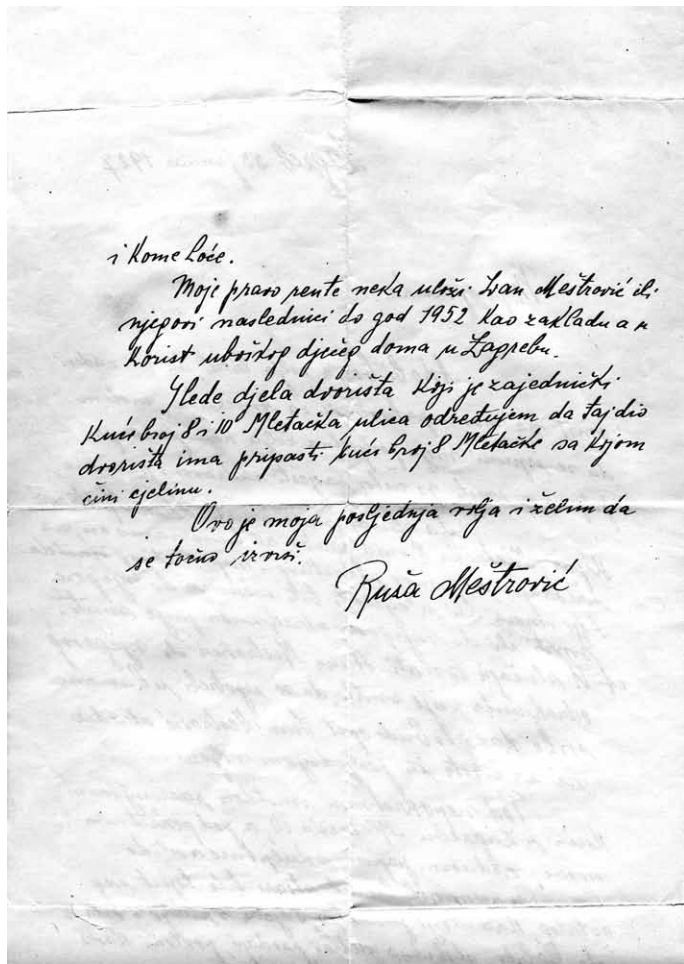 i kome hoće.
Moje pravo rente neka uloži Ivan Meštrović ili
njegovi naslednici do god 1952 kao zakladu a u
korist ubožkog dječjeg doma u Zagrebu.
Glede djela dvorišta koji je zajednički
kući broj 8 i 10 Mletačka ulica određujem da taj dio
dvorišta ima pripasti kući broj 8 Mletačke sa kojom
čini cjelinu.
Ovo je moja posljednja volja i želim da
se točno izvrši.
Ruža Meštrović